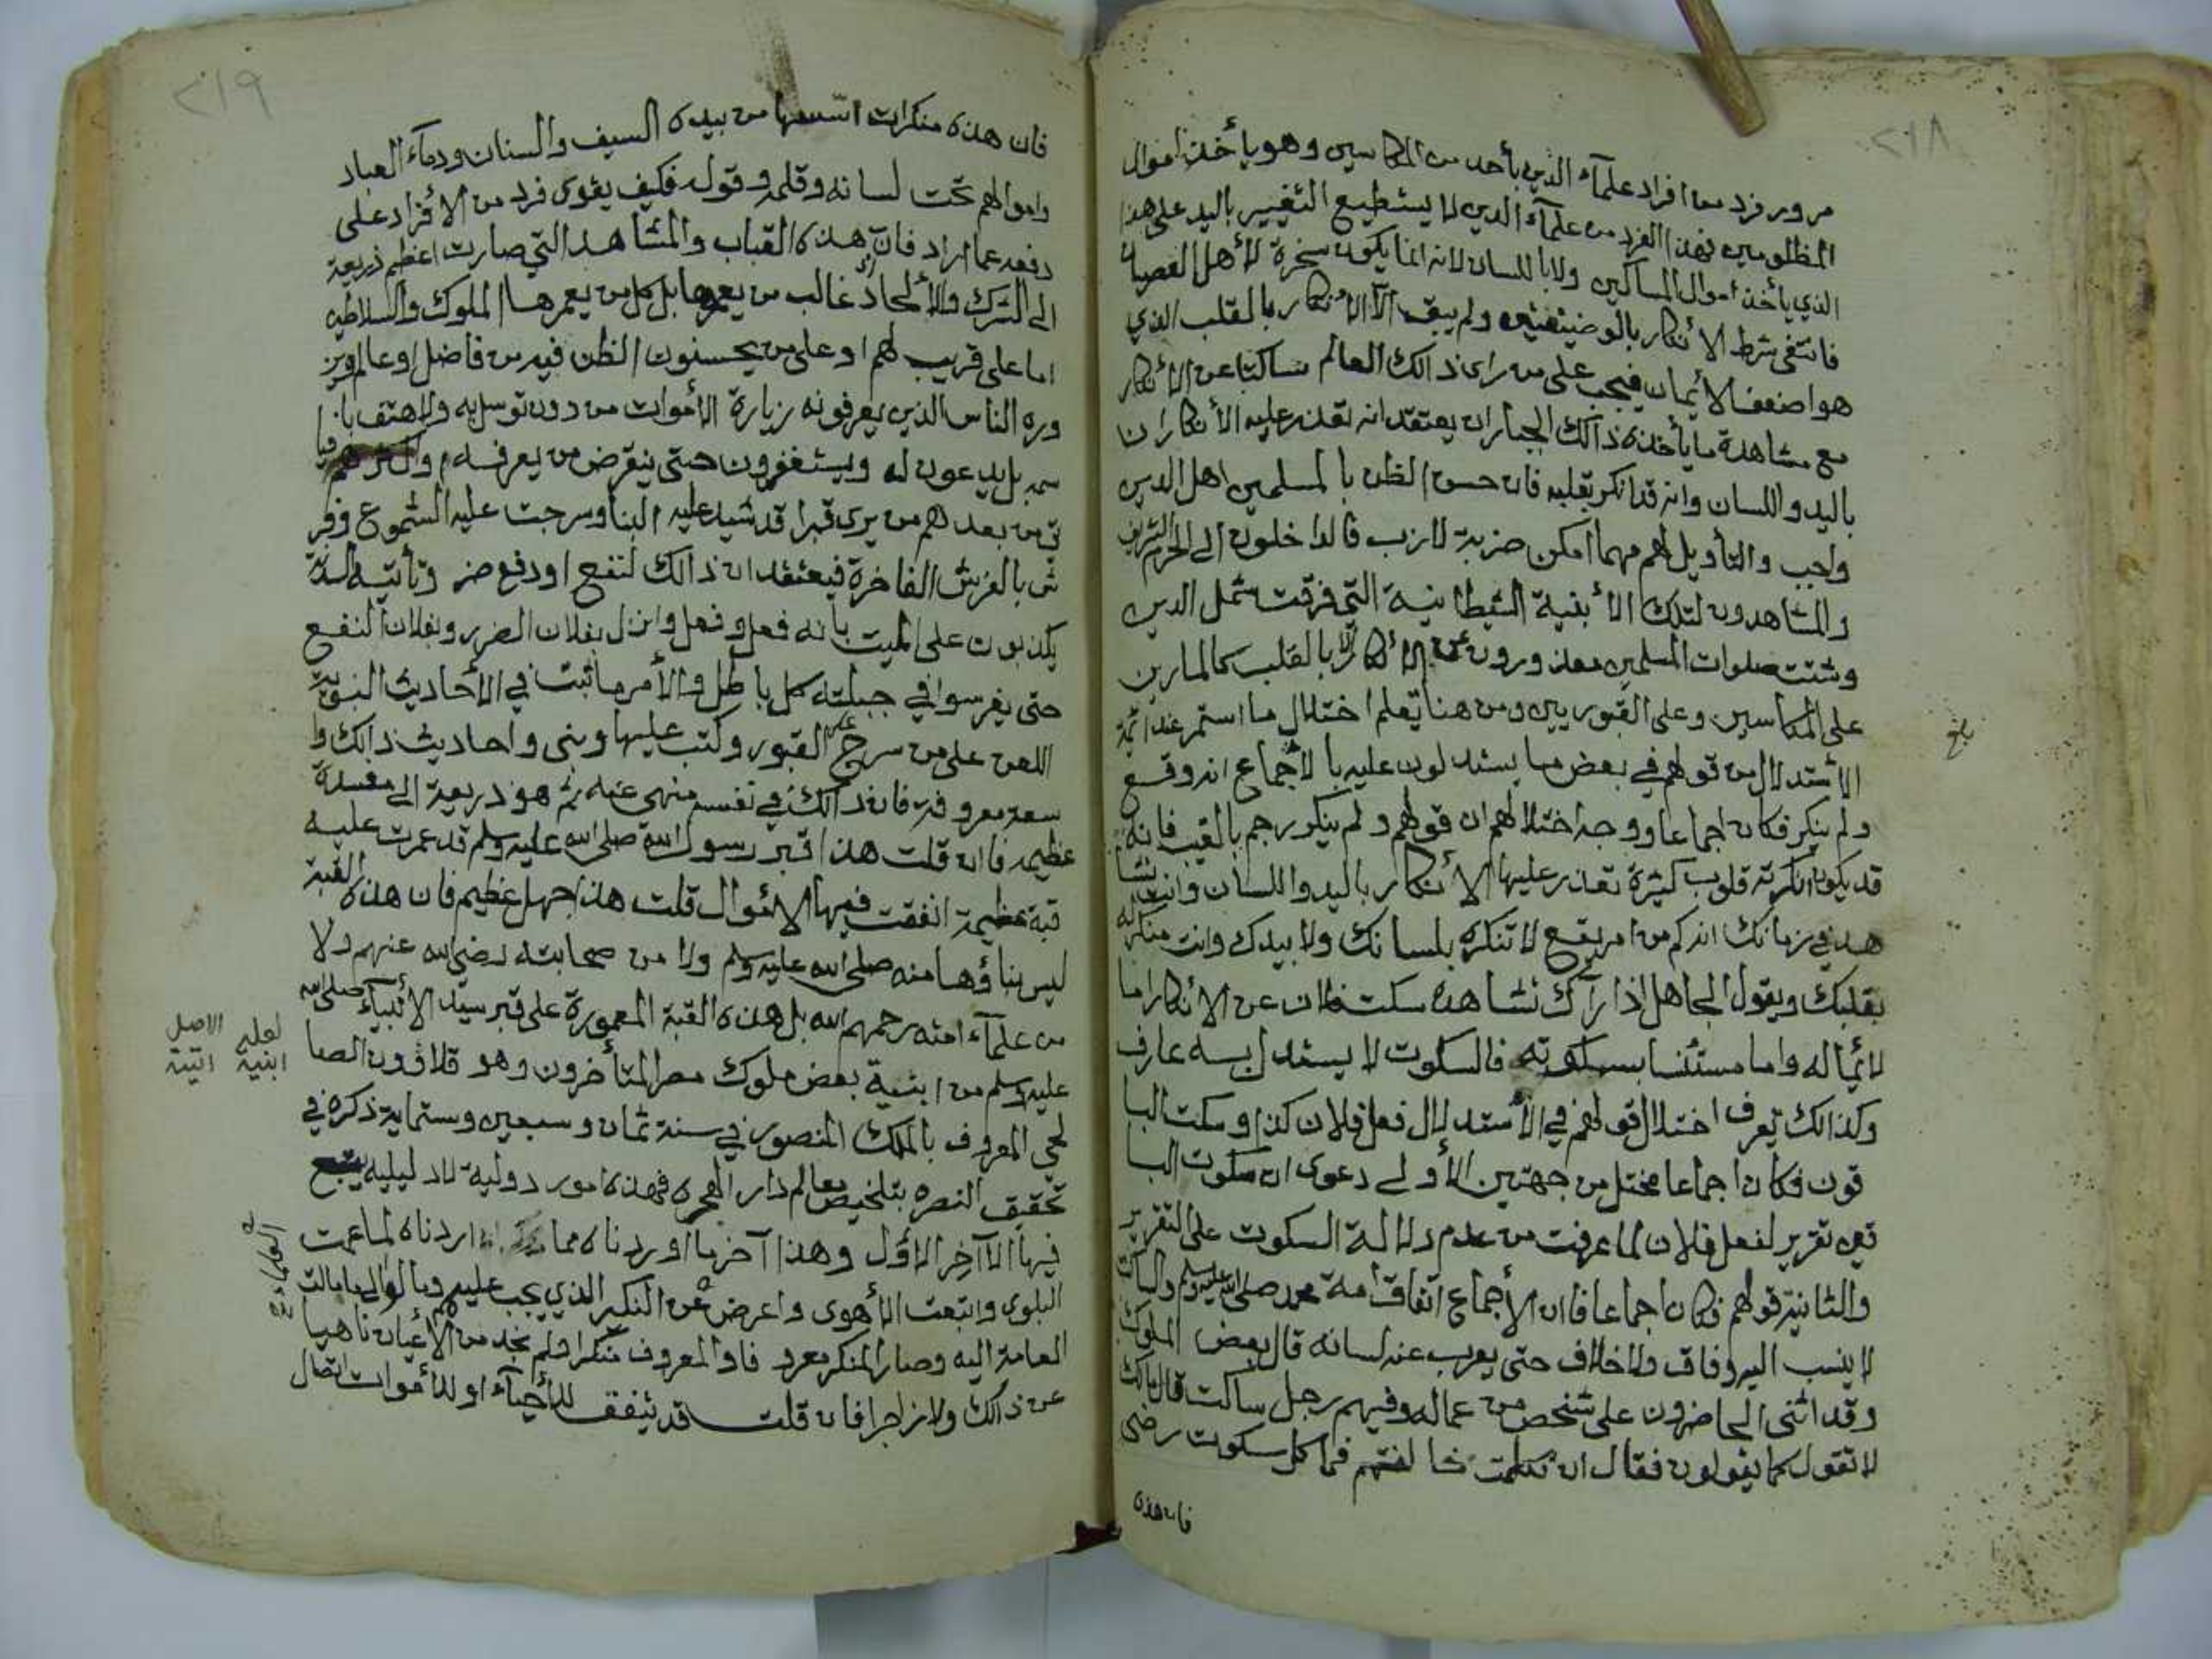 ٢١٨
مرور فرد من افراد علمآء الدين بأحد من المكاسين وهو يأخذ اموال
المظلومين فهذا الفرد من علمآء الدين لا يستطيع التغيير باليد على هذا
الذي يأخذ اموال المساكين ولا باللسان لانه انما يكون سخرة لأهل العصيان
فانتفى شرط الأنكار بالوضيفتين ولم يبق الآ الأنكار بالقلب الذي
هو اضعف الأيمان فيجب على من راى ذالك العالم ساكتا عن الأنكار
مع مشاهدة ما يأخذه ذالك الجبار ان يعتقد انه تعذر عليه الأنكار ان
باليد واللسان وانه قد انكر بقلبه فان حسن الظن بالمسلمين اهل الدين
واجب والتأويل لهم مهما امكن ضربة لازب فالداخلون الى الحرم الشريف
والمشاهدون لتلك الأبنية الشيطانية التي فرقت شمل الدين
وشتت صلوات المسلمين معذورون عن الأنكار الا بالقلب كالمارين
على المكاسين وعلى القبوريين ومن هنا يعلم اختلال ما استمر عند ائمة
الأستدلال من قولهم في بعض ما يستدلون عليه بالأجماع انه وقع
ولم ينكر فكان اجماعا ووجه اختلالهم ان قولهم ولم ينكر رجم بالغيب فانه
قد يكون انكرته قلوب كثيرة تعذر عليها الأنكار باليد واللسان وانت تشا
هد في زمانك انه كم من امر يقع لا تنكره بلسانك ولا بيدك وانت منكر له
بقلبك ويقول الجاهل اذا رآك تشاهده سكت فلان عن الأنكار اما
لائما له واما مستئنسا بسكوته فالسكوت لا يستدل به عارف
وكذالك يعرف اختلال قولهم في الأستدلال فعل فلان كذا وسكت البا
قون فكان اجماعا مختل من جهتين الأولى دعوى ان سكوت البا
قين تقرير لفعل فلان لما عرفت من عدم دلالة السكوت على التقرير
والثانية قولهم فكان اجماعا فان الأجماع اتفاق امة محمد صلى الله عليه وسلم والساكت
لا ينسب اليه وفاق ولا خلاف حتى يعرب عنه لسانه قال بعض الملوك
وقد اثنى الحاضرون على شخص من عماله وفيهم رجل ساكت قال مالك
لا تقول كما يقولون فقال ان تكلمت خالفتهم فما كل سكوت رضى
فان هذه
٢١٩
فان هذه منكرات اسسها من بيده السيف والسنان ودمآء العباد
واموالهم تحت لسانه وقلمه وقوله فكيف يقوى فرد من الأفراد على
دفعه عما اراد فان هذه القباب والمشاهد التي صارت اعظم ذريعة
الى الشرك والألحاد غالب من يعمرها بل كل من يعمرها الملوك والسلاطين
اما على قريب لهم او على من يحسنون الظن فيه من فاضل او عالم ويز
وره الناس الذين يعرفونه زيارة الأموات من دون توسل به ولا هتف با
سمه بل يدعون له ويستغفرون حتى ينقرض من يعرفه او اكثرهم فيا
تي من بعدهم من يرى قبرا قد شيد عليه البنا وسرجت عليه الشموع وفر
ش بالفرش الفاخرة فيعتقد ان ذالك لنفع او دفع ضر وتأتيه السدنة
يكذبون على الميت بأنه فعل وفعل وانزل بفلان الضرر وبفلان النفع
حتى يغرسوا في جبلته كل باطل والأمر ما ثبت في الأحاديث النبوية
اللعن على من سرج على القبور وكتب عليها وبنى واحاديث ذالك وا
سعة معروفة فان ذالك في نفسه منهي عنه ثم هو ذريعة الى مفسدة
عظيمه فان قلت هذا قبر رسول الله صلى الله عليه وسلم قد عمرت عليه
قبة عظيمة انفقت فيها الأموال قلت هذا جهل عظيم فان هذه القبة
ليس بناؤها منه صلى الله عليه وسلم ولا من صحابته رضي الله عنهم ولا
من علمآء امته رحمهم الله بل هذه القبة المعمورة على قبر سيد الأنبيآء صلى الله
عليه وسلم من ابنية بعض ملوك مصر المتأخرون وهو قلاوون الصا
لحي المعروف بالملك المنصور في سنة ثمان وسبعين وستماية ذكره في
تحقيق النصره بتلخيص معالم دار الهجره فهذه امور دولية لا دليليه يتبع
فيها الآخر الاول وهذا آخر ما اوردناه مما اردناه لما عمت
البلوى واتبعت الأهوى واعرض عن النكير الذي يجب عليهم ومالوا الى ما مالت
العامة اليه وصار المنكر معروفا والمعروف منكرا فلم نجد من الأعيان ناهيا
عن ذالك ولا زاجرا فان قلت قد يتفق للأحيآء او للأموات اتصال
لعله الاصل
ابنية
العلماء